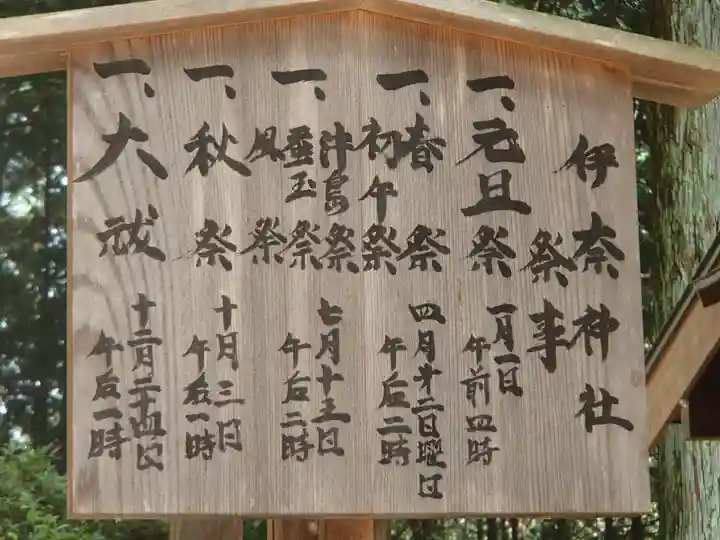 伊奈神社
祭事
一、元旦祭 一月一日
午前四時
一、春祭
初午祭
四月才二日曜日
午后二時
一、津島祭
蚕玉祭
風祭
七月十五日
午后二時
一、秋祭 十月三日
午后一時
一、大祓 十二月二十四日
午后一時